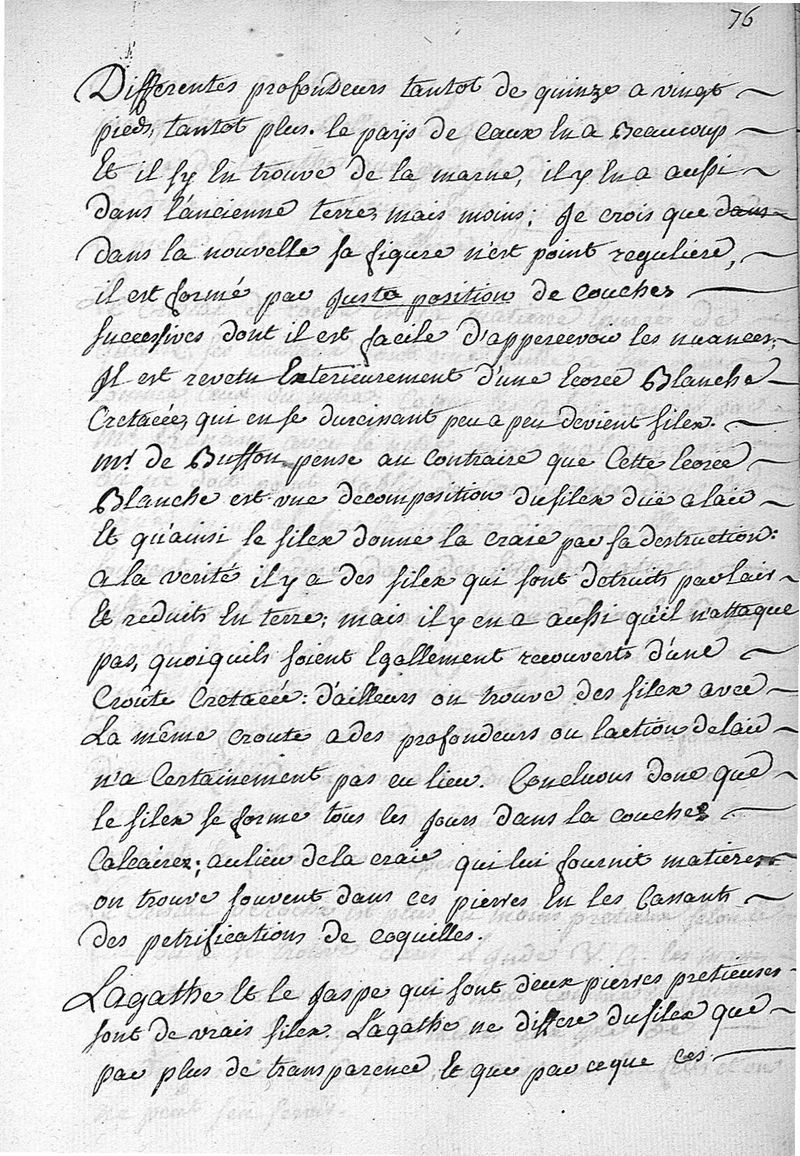 76
Differentes profondeurs tantot de quinze a vingt
pieds, tantot plus. le pays de Caux En a Beaucoup
Et il sy En trouve de la marne, il y En a aussi
dans l'ancienne terre, mais moins; Je crois que dans
dans la nouvelle sa figure n'est point reguliere,
il est formé par Justa position de couches
successives dont il est facile d'appercevoir les nuances;
Il est revetu Exterieurement d'une Ecorce Blanche
Cretacée, qui en se durcissant peu a peu devient silex.
mr. de Buffon pense au Contraire que Cette Ecorce
Blanche est une decomposition du silex düe a lair
Et qu'ainsi le silex donne la craie par sa destruction:
a la verité il y a des silex qui sont detruits par lair
Et reduits En terre; mais il y en a aussi qu'il n'attaque
pas, quoiquils soient Egallement recouverts d'une
Croûte Cretacée: d'ailleurs on trouve des silex avec
La même croute a des profondeurs ou laction de lair
n'a Certainement pas eu lieu. Concluons donc que
le silex se forme tous les Jours dans la couches
Calcaires; aulieu de la craie qui lui fournit matieres
on trouve souvent dans ces pierres En les Cassants
des petrifications de coquilles.
Lagathe Et le Jaspe qui sont deux pierres pretieuses
sont de vrais silex. Lagathe ne differe du silex que
par plus de transparence, Et que parceque ces